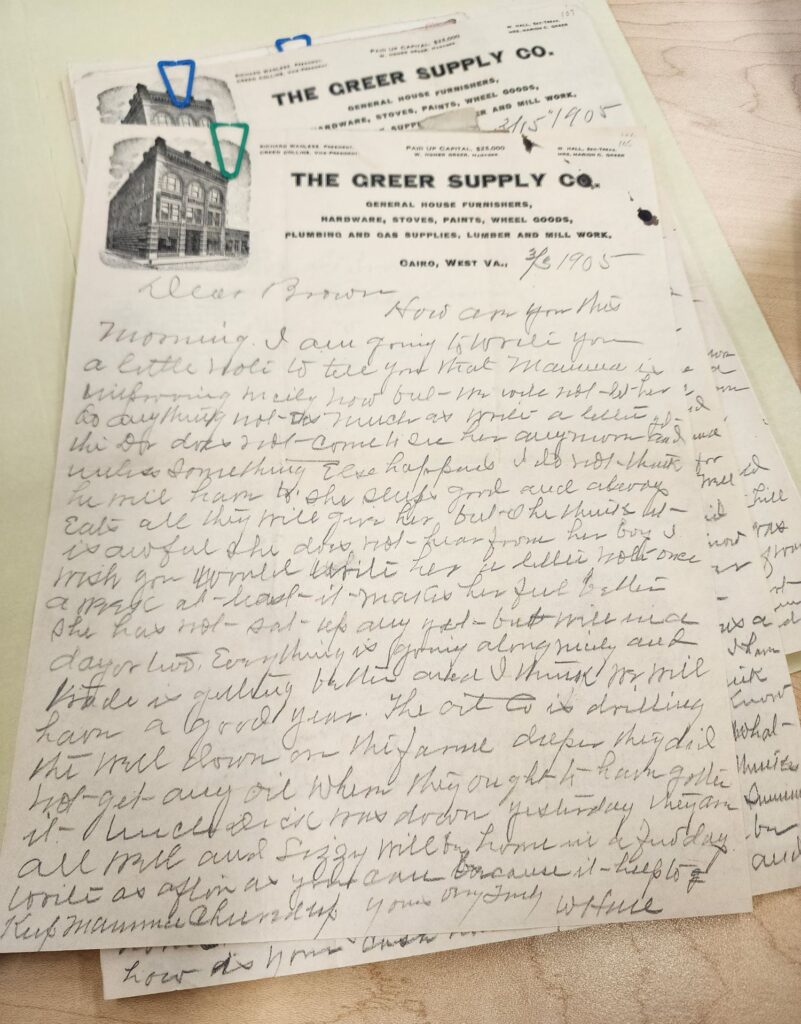 107
RICHARD WANLESS, PRESIDENT.
CREED COLLINS, VICE-PRESIDENT.
PAID UP CAPITAL, $25,000
W. HOMER GREER, MANAGER
W. HALL, SEC-TREAS.
MRS. MARION C. GREER
THE GREER SUPPLY CO.
GENERAL HOUSE FURNISHERS,
HARDWARE, STOVES, PAINTS, WHEEL GOODS,
SUPPL ER AND MILL WORK.
3/15 1905
RICHARD WANLESS, PRESIDENT.
CREED COLLINS, VICE-PRESIDENT.
PAID UP CAPITAL, $25,000
W. HOMER GREER, MANAGER
W. HALL, SEC-TREAS.
MRS. MARION C. GREER
THE GREER SUPPLY CO.
GENERAL HOUSE FURNISHERS,
HARDWARE, STOVES, PAINTS, WHEEL GOODS,
PLUMBING AND GAS SUPPLIES, LUMBER AND MILL WORK.
CAIRO, WEST VA., 3/3 1905
Dear Brown
How are you this
Morning. I am going to write you
a little note to tell you that Mamma is
improving nicely now but we will not let her
do anything not as much as write a letter
the Dr does not come to see her anymore and
unless something Else happens I do not think
he will have to. she sleeps good and always
Eats all they will give her but she thinks it
is awful she does not hear from her boy I
wish you would write her a little note once
a week at least it makes her feel better
she has not sat up any yet but will in a
day or two. Everything is going along nicely and
trade is getting better and I think we will
have a good year. The oil Co is drilling
the well down on the farme deeper they did
not get any oil where they ought to have gotten
it Uncle Dick was down yesterday they are
all well and Lizzy will be home in a few days
write as often as you can because it helps to
Keep Mamma Cheered up yours very Truly W Hall
know
What
thinks
be
and
how is your